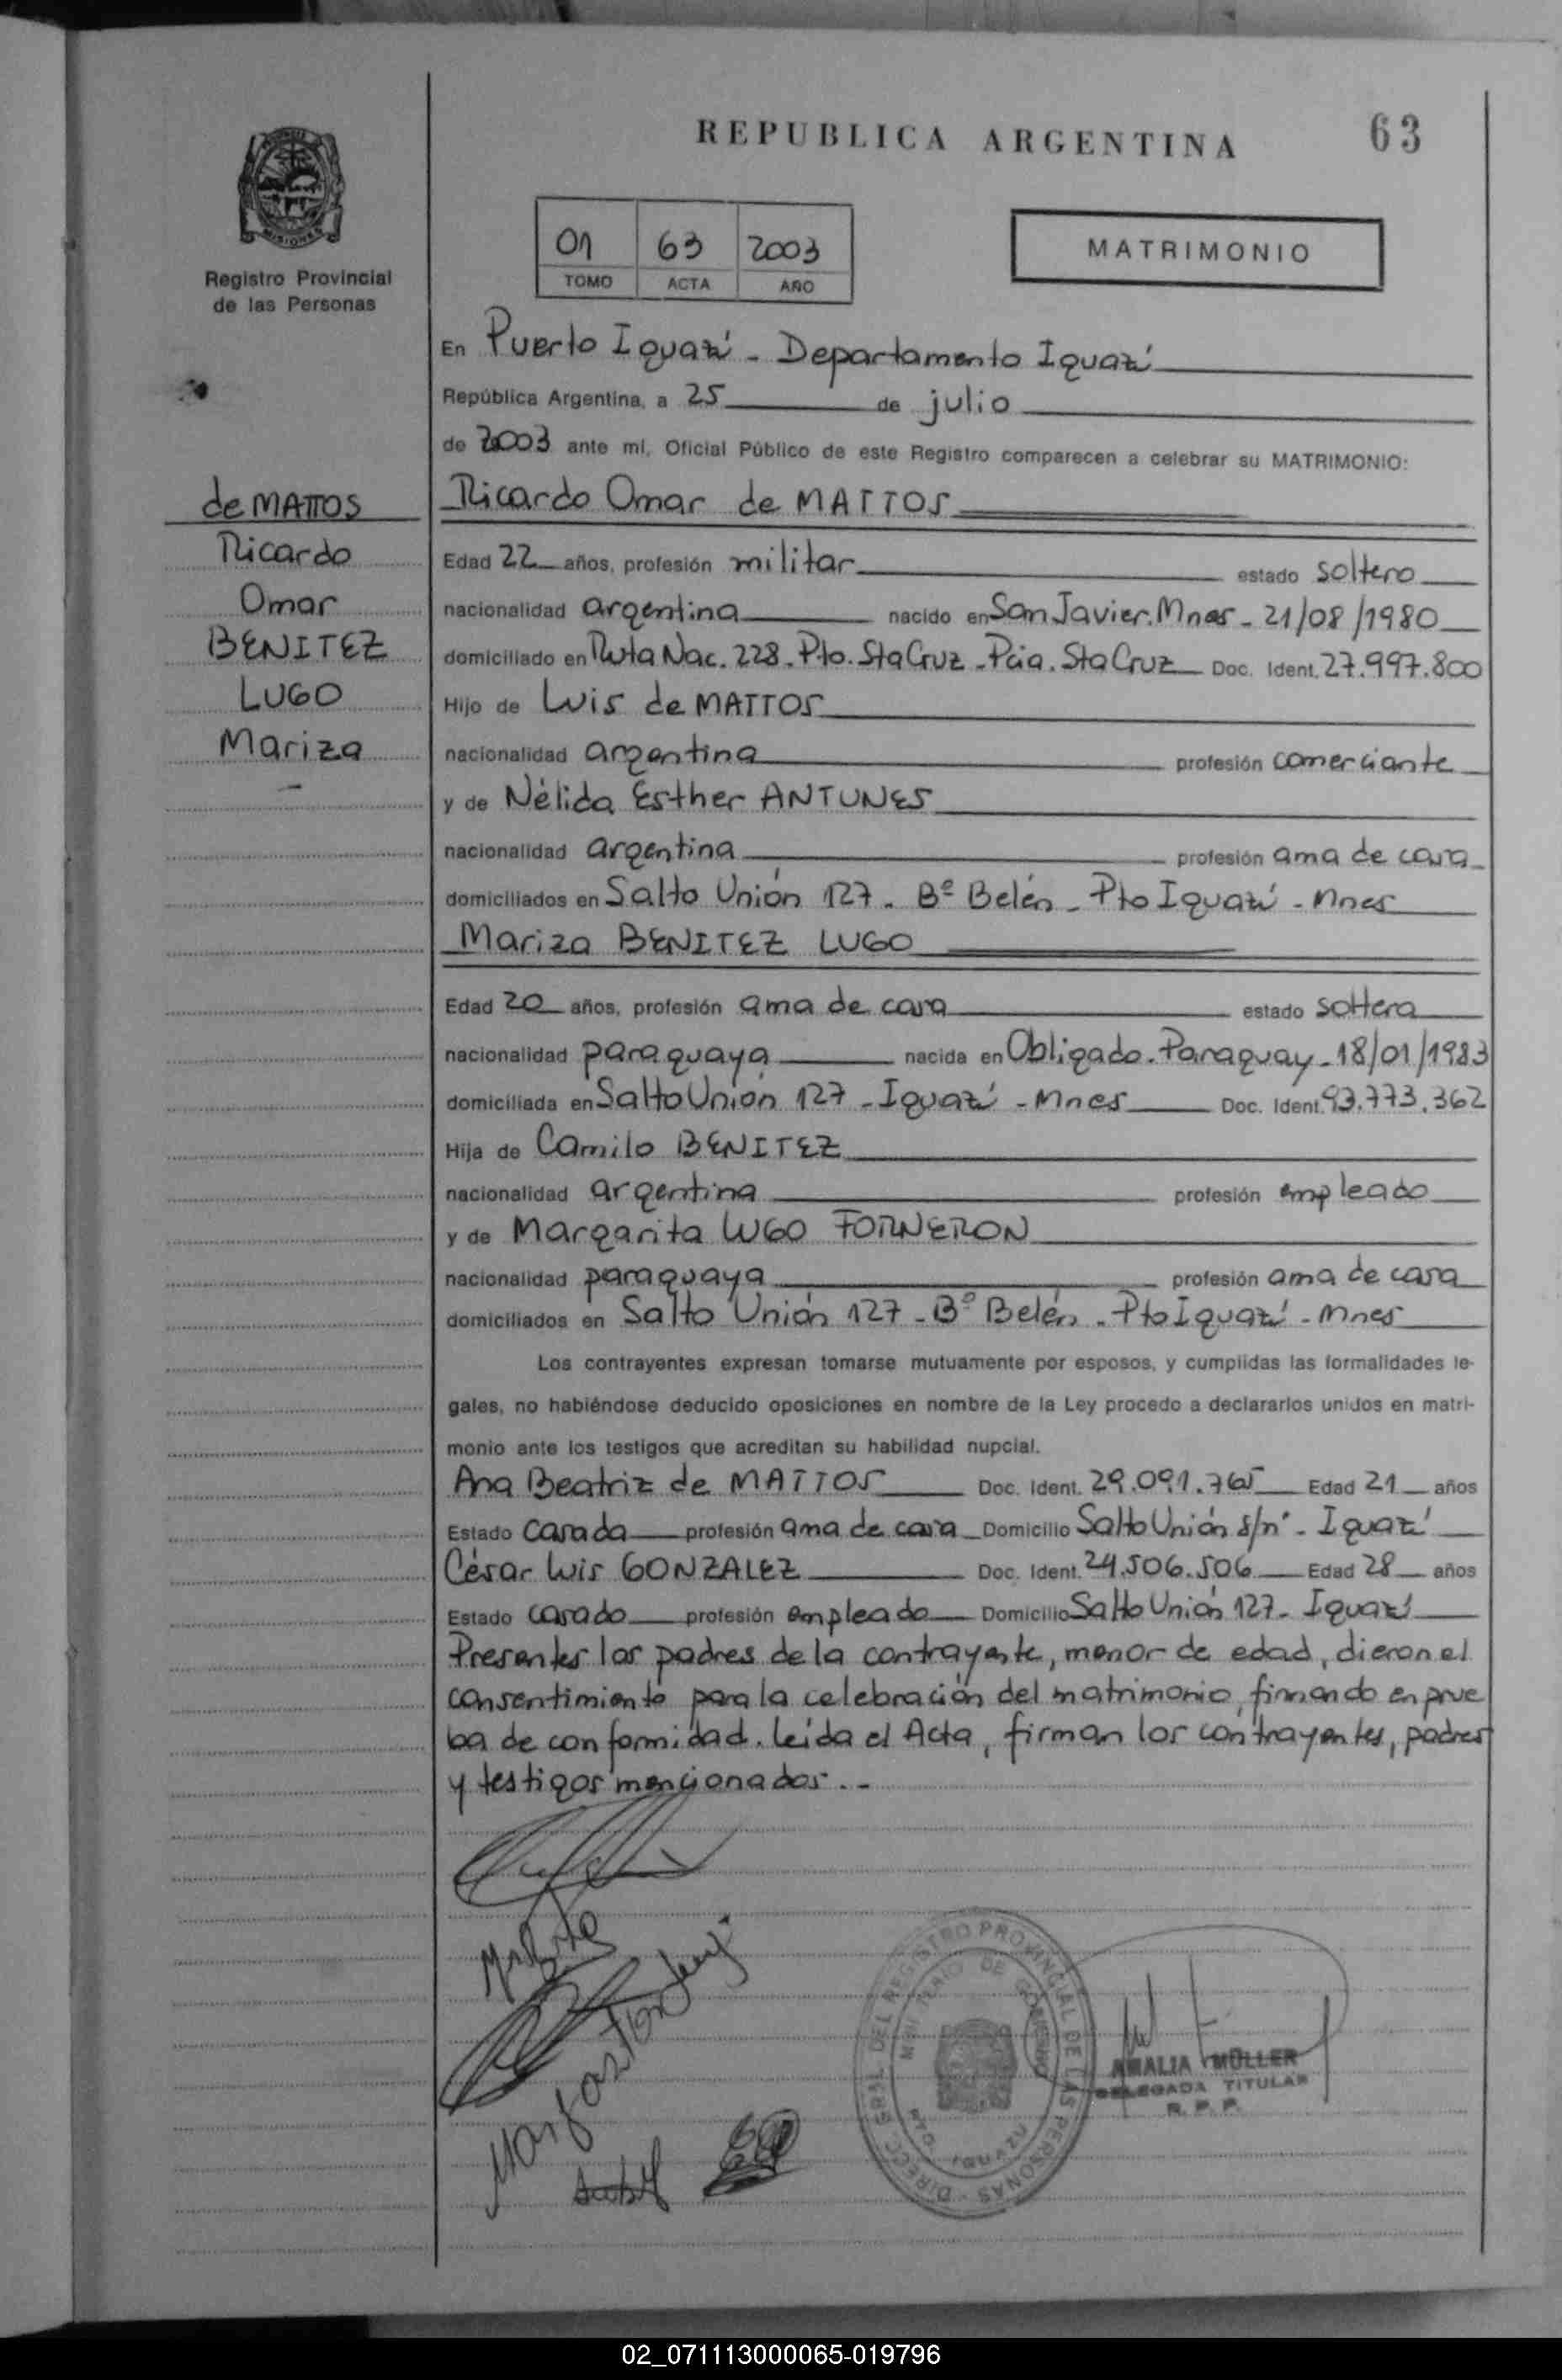 REPUBLICA ARGENTINA
63
MISIONES
Registro Provincial
de las Personas
01 63 2003
TOMO ACTA AÑO
MATRIMONIO
En Puerto Iguazú - Departamento Iguazú
República Argentina, a 25 de julio
de 2003 ante mí, Oficial Público de este Registro comparecen a celebrar su MATRIMONIO:
de MATTOS
Ricardo
Omar
BENITEZ
LUGO
Mariza
Ricardo Omar de MATTOS
Edad 22 años, profesión militar estado soltero
nacionalidad argentina nacido en San Javier. Mnes - 21/08/1980
domiciliado en Ruta Nac. 228 - Pto. Sta Cruz - Pcia. Sta Cruz Doc. Ident. 27.997.800
Hijo de Luis de MATTOS
nacionalidad argentina profesión comerciante
y de Nélida Esther ANTUNES
nacionalidad argentina profesión ama de casa
domiciliados en Salto Unión 127 - Bº Belén - Pto Iguazú - Mnes
Mariza BENITEZ LUGO
Edad 20 años, profesión ama de casa estado soltera
nacionalidad paraguaya nacida en Obligado - Paraguay - 18/01/1983
domiciliada en Salto Unión 127 - Iguazú - Mnes Doc. Ident. 93.773.362
Hija de Camilo BENITEZ
nacionalidad argentina profesión empleado
y de Margarita LUGO FORNERON
nacionalidad paraguaya profesión ama de casa
domiciliados en Salto Unión 127 - Bº Belén - Pto Iguazú - Mnes
Los contrayentes expresan tomarse mutuamente por esposos, y cumplidas las formalidades le-
gales, no habiéndose deducido oposiciones en nombre de la Ley procedo a declararlos unidos en matri-
monio ante los testigos que acreditan su habilidad nupcial.
Ana Beatriz de MATTOS Doc. Ident. 29.091.765 Edad 21 años
Estado casada profesión ama de casa Domicilio Salto Unión s/nº - Iguazú
César Luis GONZALEZ Doc. Ident. 24.506.506 Edad 28 años
Estado casado profesión empleado Domicilio Salto Unión 127 - Iguazú
Presentes los padres de la contrayente, menor de edad, dieron el
consentimiento para la celebración del matrimonio, firmando en prue
ba de conformidad. Leída el Acta, firman los contrayentes, padres
y testigos mencionados. -
DIRECC. GRAL. DEL REGISTRO PROVINCIAL DE LAS PERSONAS
MINISTERIO DE GOBIERNO
PTO. IGUAZU
AMALIA MÜLLER
DELEGADA TITULAR
R. P. P.
02_071113000065-019796